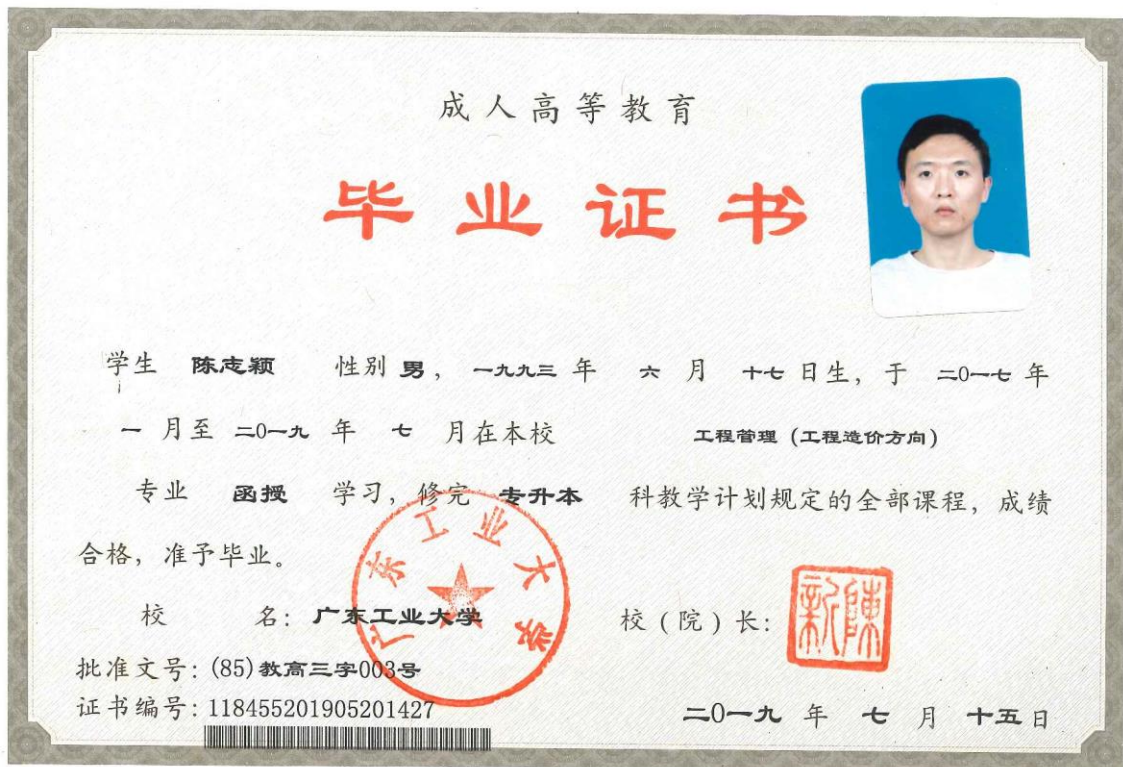 成人高等教育
毕业证书
学生 陈志颖 性别 男， 一九九三 年 六 月 十七 日生，于 二0一七 年
一 月至 二0一九 年 七 月在本校 工程管理（工程造价方向）
专业 函授 学习，修完 专升本 科教学计划规定的全部课程，成绩
合格，准予毕业。
广东工业大学
校 名：广东工业大学 校（院）长：
陳新
批准文号：(85)教高三字003号
证书编号：118455201905201427
二0一九 年 七 月 十五 日